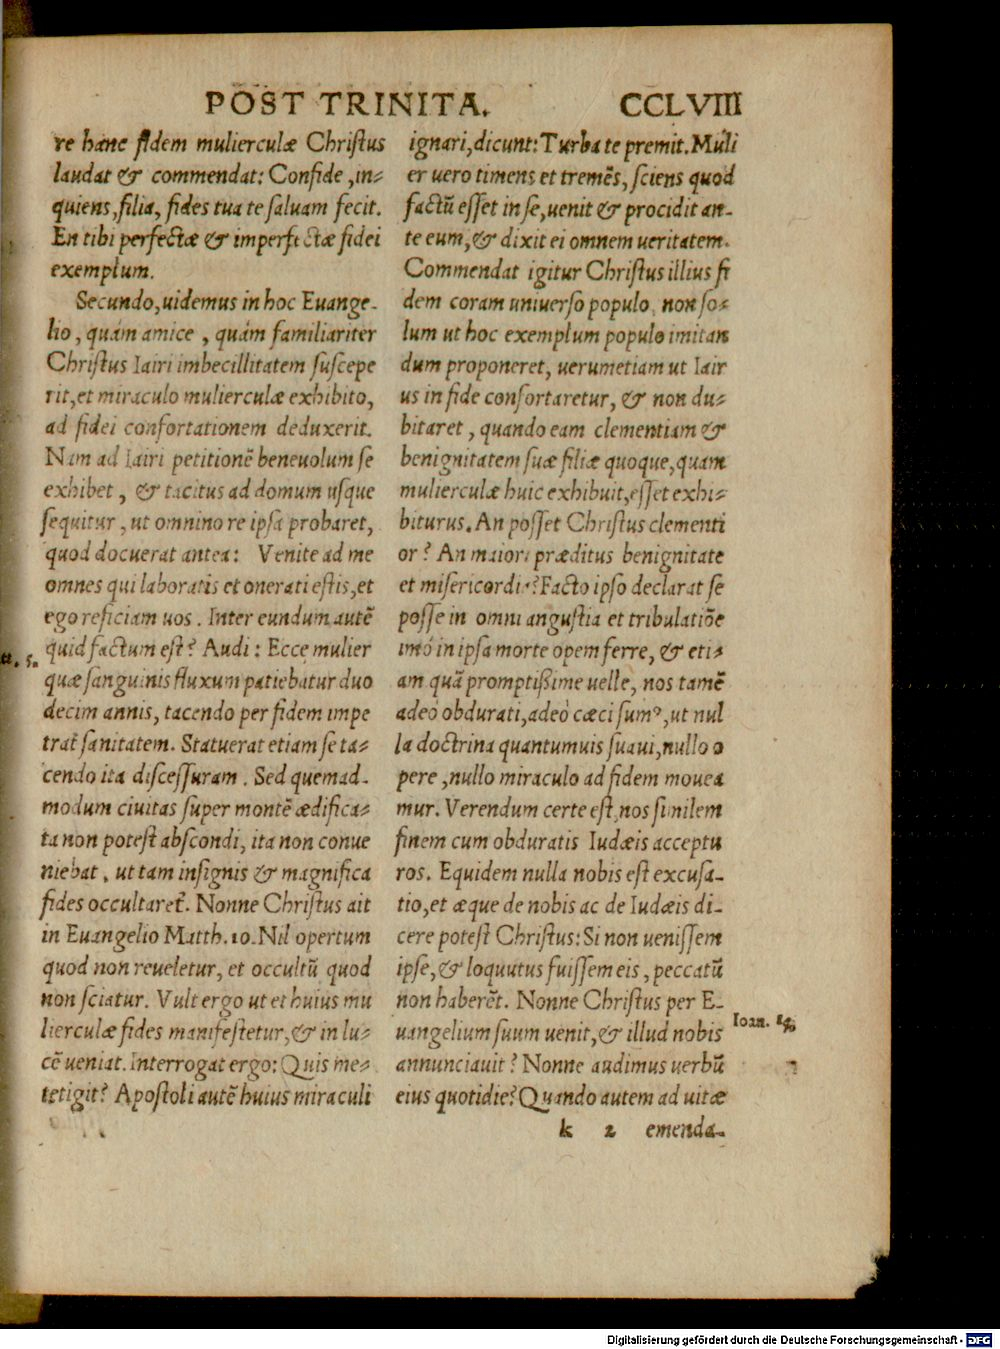 POST TRINITA. CCLVIII
re hanc fidem mulierculæ Chriſtus
laudat & commendat: Confide, in-
quiens, filia, fides tua te ſaluam fecit.
En tibi perfectæ & imperfectæ fidei
exemplum.
Secundo, uidemus in hoc Euange-
lio, quám amice, quám familiariter
Chriſtus Iairi imbecillitatem ſuſcepe
rit, et miraculo mulierculæ exhibito,
ad fidei confortationem deduxerit.
Nam ad Iairi petitionē beneuolum ſe
exhibet, & tacitus ad domum uſque
ſequitur, ut omnino re ipſa probaret,
quod docuerat antea: Venite ad me
omnes qui laboratis et onerati eſtis, et
ego reficiam uos. Inter eundum autē
quid factum eſt? Audi: Ecce mulier
quæ ſanguinis fluxum patiebatur duo
decim annis, tacendo per fidem impe
trat ſanitatem. Statuerat etiam ſe ta-
cendo ita diſceſſuram. Sed quemad-
modum ciuitas ſuper montē ædifica-
ta non poteſt abſcondi, ita non conue
niebat, ut tam inſignis & magnifica
fides occultaret. Nonne Chriſtus ait
in Euangelio Matth. 10. Nil opertum
quod non reueletur, et occultū quod
non ſciatur. Vult ergo ut et huius mu
lierculæ fides manifeſtetur, & in lu-
cē ueniat. Interrogat ergo: Quis me
tetigit? Apoſtoli autē huius miraculi
5.
ignari, dicunt: Turba te premit. Muli
er uero timens et tremēs, ſciens quod
factū eſſet in ſe, uenit & procidit an-
te eum, & dixit ei omnem ueritatem.
Commendat igitur Chriſtus illius fi
dem coram uniuerſo populo, non ſo-
lum ut hoc exemplum populo imitan
dum proponeret, uerumetiam ut Iair
us in fide conſortaretur, & non du-
bitaret, quando eam clementiam &
benignitatem ſuæ filiæ quoque, quam
mulierculæ huic exhibuit, eſſet exhi-
biturus. An poſſet Chriſtus clementi
or? An maiori præditus benignitate
et miſericordia? Facto ipſo declarat ſe
poſſe in omni anguſtia et tribulatiōe
imó in ipſa morte opem ferre, & eti-
am quā promptißime uelle, nos tamē
adeó obdurati, adeó cæci ſumꝰ, ut nul
la doctrina quantumuis ſuaui, nullo o
pere, nullo miraculo ad fidem mouea
mur. Verendum certe eſt, nos ſimilem
finem cum obduratis Iudæis acceptu
ros. Equidem nulla nobis eſt excuſa-
tio, et æque de nobis ac de Iudæis di-
cere poteſt Chriſtus: Si non ueniſſem
ipſe, & loquutus fuiſſem eis, peccatū
non haberēt. Nonne Chriſtus per E-
uangelium ſuum uenit, & illud nobis
annunciauit? Nonne audimus uerbū
eius quotidie? Quando autem ad uitæ
Ioan. 15.
k 2 emenda-
Digitalisierung gefördert durch die Deutsche Forschungsgemeinschaft - DFG